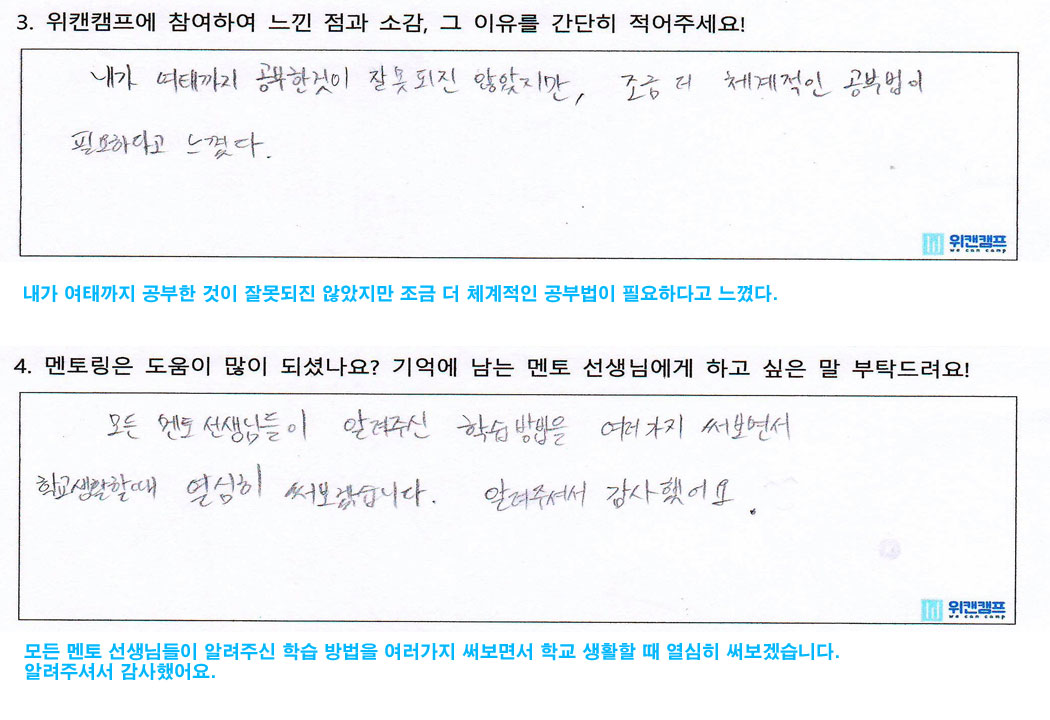 3. 위캔캠프에 참여하여 느낀 점과 소감, 그 이유를 간단히 적어주세요!
내가 여태까지 공부한것이 잘못되진 않았지만, 조금 더 체계적인 공부법이
필요하다고 느꼈다.
위캔캠프
we can camp
내가 여태까지 공부한 것이 잘못되진 않았지만 조금 더 체계적인 공부법이 필요하다고 느꼈다.
4. 멘토링은 도움이 많이 되셨나요? 기억에 남는 멘토 선생님에게 하고 싶은 말 부탁드려요!
모든 멘토 선생님들이 알려주신 학습 방법을 여러가지 써보면서
학교생활할때 열심히 써보겠습니다. 알려주셔서 감사했어요.
위캔캠프
we can camp
모든 멘토 선생님들이 알려주신 학습 방법을 여러가지 써보면서 학교 생활할 때 열심히 써보겠습니다.
알려주셔서 감사했어요.